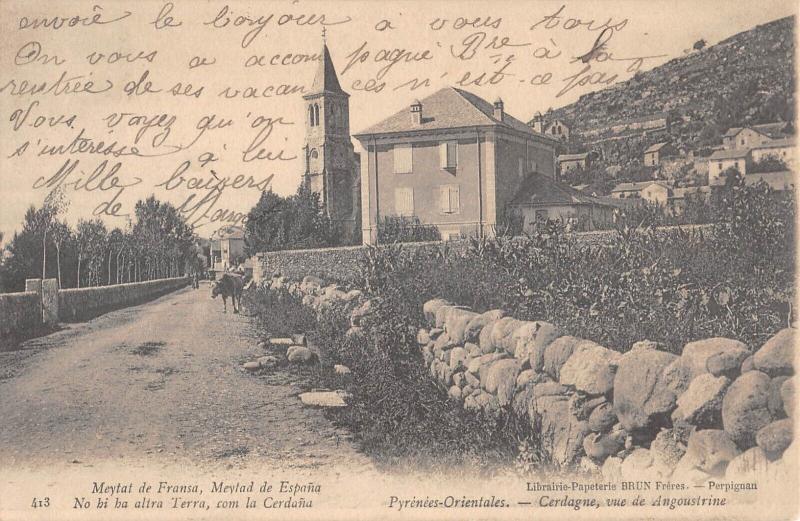 envoie le bonjour à vous tous
On vous a accompagné Dre à la
rentrée de ses vacances n'est-ce pas
Vous voyez qu'on
s'intéresse à lui
Mille baisers
de
Meytat de Fransa, Meytad de España
No hi ha altra Terra, com la Cerdaña
413
Librairie-Papeterie BRUN Fréres. — Perpignan
Pyrénées-Orientales. — Cerdagne, vue de Angoustrine